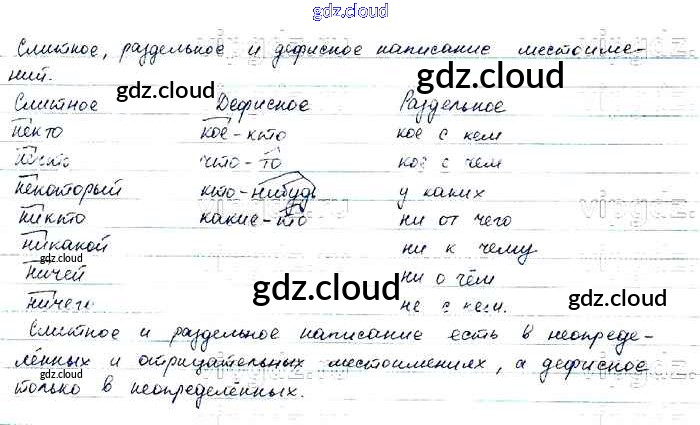 gdz.cloud
Слитное, раздельное и дефисное написание местоиме-
ний.
gdz.cloud gdz.cloud
Слитное Дефисное Раздельное
некто кое-кто кое с кем
что-то кое с чем
некоторый кто-нибудь у каких
никто какие-то ни от чего
никакой ни к чему
gdz.cloud
ничей ни о чём
gdz.cloud gdz.cloud
ничего не с кем.
Слитное и раздельное написание есть в неопреде-
лённых и отрицательных местоимениях, а дефисное
только в неопределённых.
gdz.cloud gdz.cloud gdz.cloud